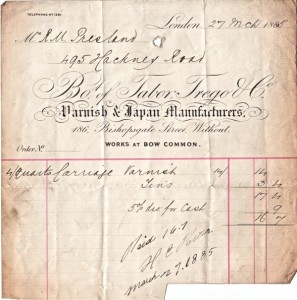 TELEPHONE Nº 1291.
London, 27 Mch 1885
Mr R M Presland
495 Hackney Road
Bot. of Tabor Trego & Co.
Varnish & Japan Manufacturers,
186, Bishopsgate Street Without.
WORKS AT BOW COMMON.
Order No.
4/Quarts Carriage Varnish 14/ 14
Tins 3 4
17 4
5% dis for Cash 9
16 7
Paid 16.7
March 27. 1885